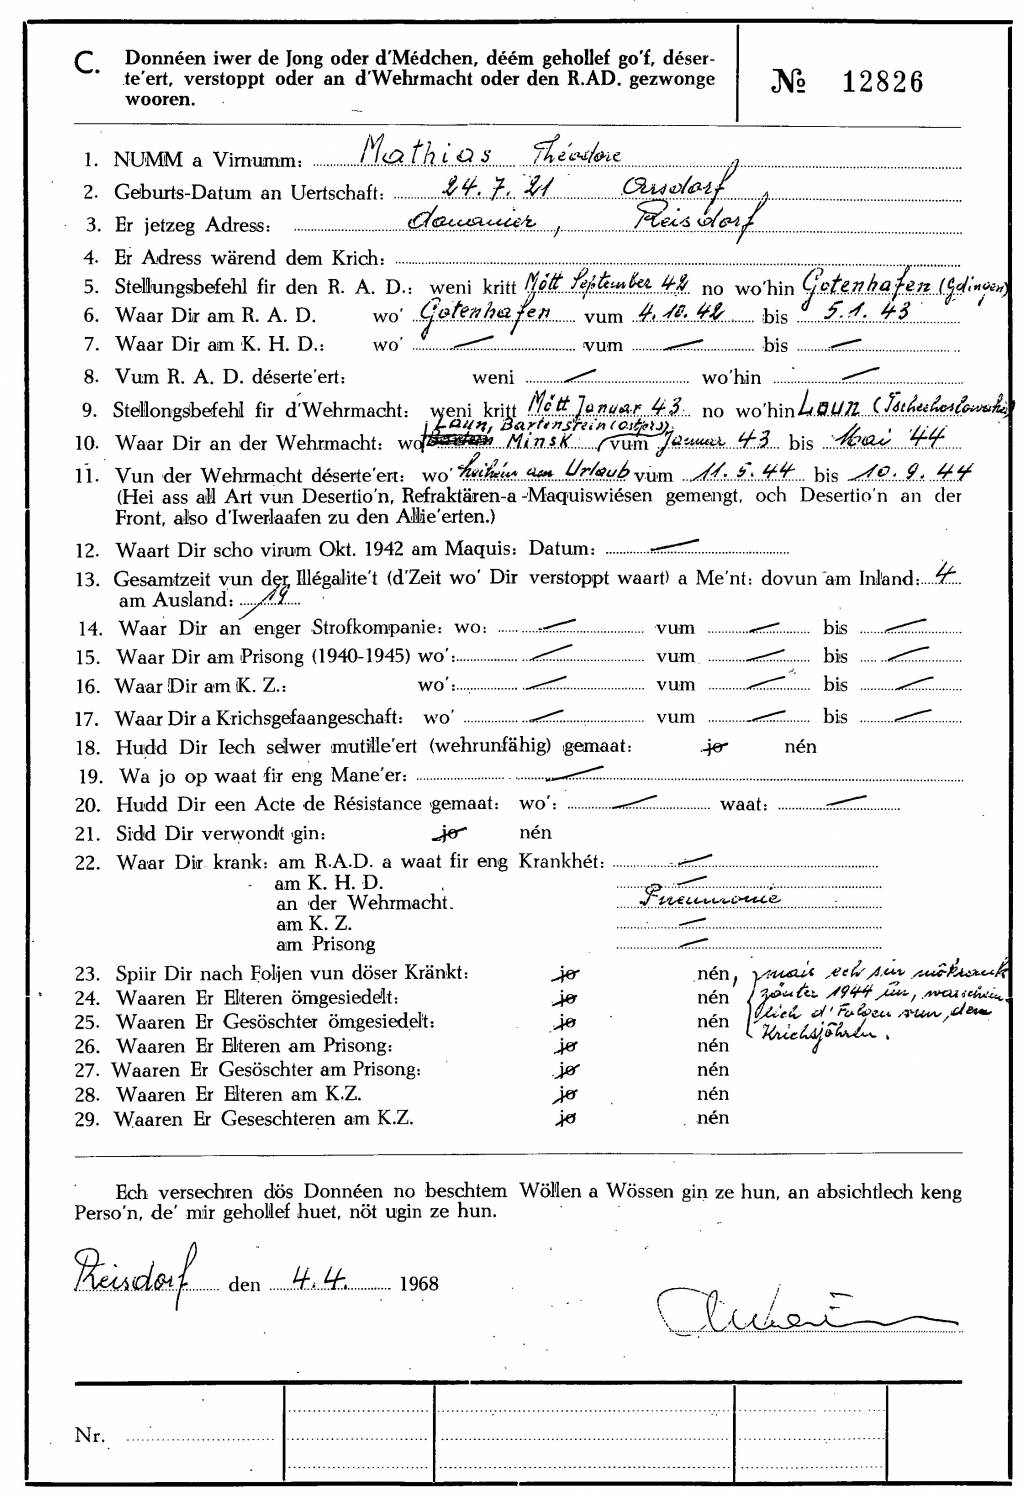 C. Donnéen iwer de Jong oder d'Médchen, déém gehollef go'f, déser-
te'ert, verstoppt oder an d'Wehrmacht oder den R.AD. gezwonge
wooren.
№ 12826
1. NUMM a Virnumm: Mathias Théodore
2. Geburts-Datum an Uertschaft: 24.7.21 Arsdorf
3. Er jetzeg Adress: douanier, Reisdorf
4. Er Adress wärend dem Krich:
5. Stellungsbefehl fir den R. A. D.: weni kritt Mött September 42 no wo'hin Gotenhafen (Gdingen)
6. Waar Dir am R. A. D. wo' Gotenhafen vum 4.10.42 bis 5.1.43
7. Waar Dir am K. H. D.: wo' — vum — bis —
8. Vum R. A. D. déserte'ert: weni — wo'hin —
9. Stellongsbefehl fir d'Wehrmacht: weni kritt Mött Januar 43 no wo'hin Laun (Tschechoslowakei)
Laun, Bartenstein (Ostpr.),
10. Waar Dir an der Wehrmacht: wo Minsk vum Januar 43 bis Mai 44
11. Vun der Wehrmacht déserte'ert: wo' am Urlaub vum 11.5.44 bis 10.9.44
(Hei ass all Art vun Desertio'n, Refraktären-a -Maquiswiésen gemengt, och Desertio'n an der
Front, also d'Iwerlaafen zu den Allie'erten.)
12. Waart Dir scho virum Okt. 1942 am Maquis: Datum: —
13. Gesamtzeit vun der Illégalite't (d'Zeit wo' Dir verstoppt waart) a Me'nt: dovun am Inland: 4
am Ausland: 19
14. Waar Dir an enger Strofkompanie: wo: — vum — bis —
15. Waar Dir am Prisong (1940-1945) wo': — vum — bis —
16. Waar Dir am K. Z.: wo': — vum — bis —
17. Waar Dir a Krichsgefaangeschaft: wo' — vum — bis —
18. Hudd Dir Iech selwer mutille'ert (wehrunfähig) gemaat: jo nén
19. Wa jo op waat fir eng Mane'er: —
20. Hudd Dir een Acte de Résistance gemaat: wo': — waat: —
21. Sidd Dir verwondt gin: jo nén
22. Waar Dir krank: am R.A.D. a waat fir eng Krankhét: —
am K. H. D. —
an der Wehrmacht. Pneumonie
am K. Z. —
am Prisong —
23. Spiir Dir nach Foljen vun döser Kränkt: jo nén, mais ech sin
24. Waaren Er Elteren ömgesiedelt: jo nén zönter 1944 warschein-
25. Waaren Er Gesöschter ömgesiedelt: jo nén lich d'Folgen vun den
26. Waaren Er Elteren am Prisong: jo nén Krichsjöhren.
27. Waaren Er Gesöschter am Prisong: jo nén
28. Waaren Er Elteren am K.Z. jo nén
29. Waaren Er Geseschteren am K.Z. jo nén
Ech versechren dös Donnéen no beschtem Wöllen a Wössen gin ze hun, an absichtlech keng
Perso'n, de' mir gehollef huet, nöt ugin ze hun.
Reisdorf den 4.4. 1968
Nr.